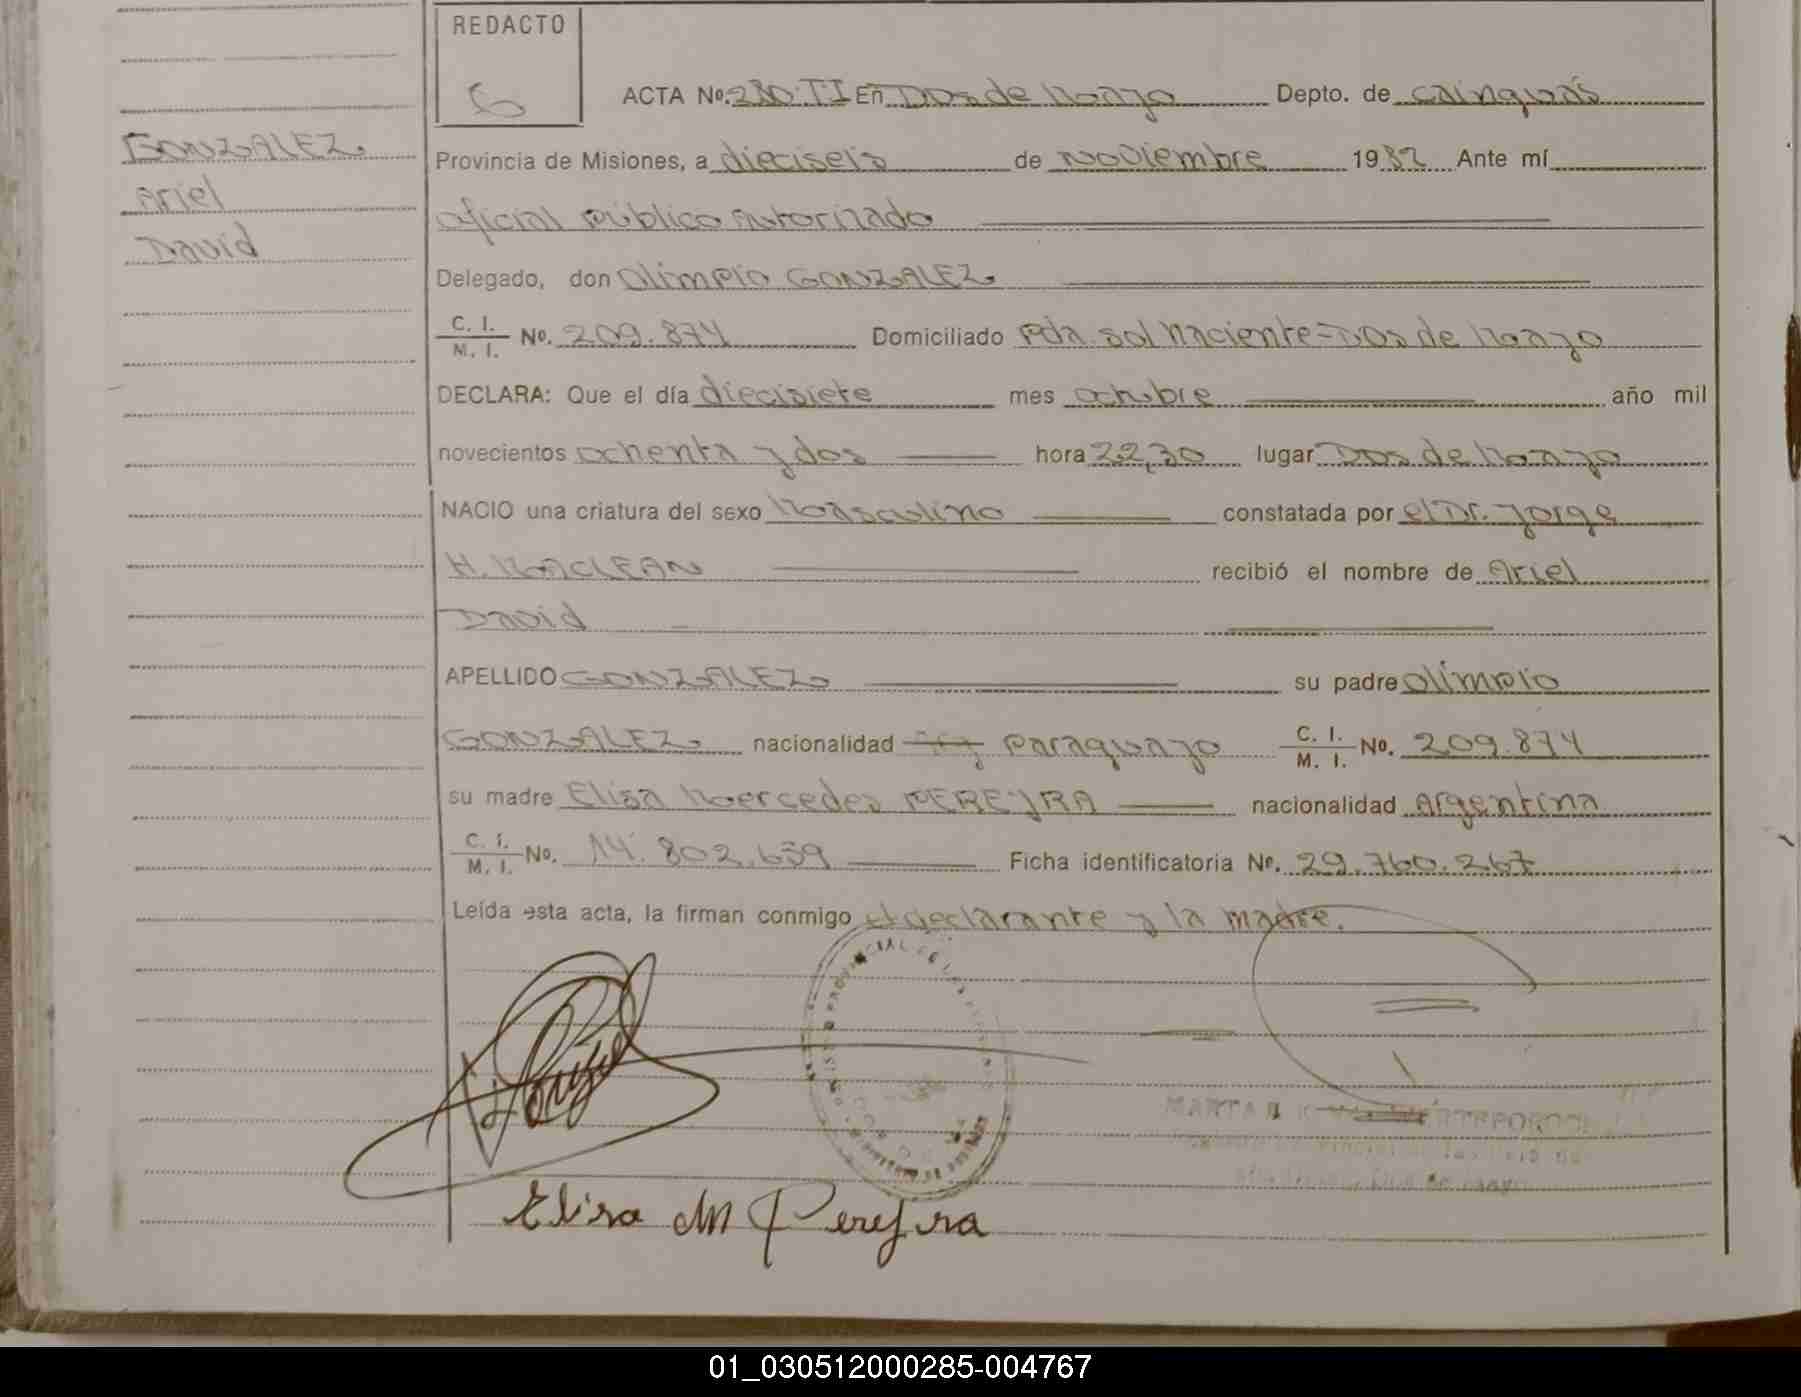 REDACTO
GONZALEZ
Ariel
David
ACTA No. 280. TI En Dos de Mayo Depto. de Cainguás
Provincia de Misiones, a dieciseis de Noviembre 1982 Ante mí
oficial público Autorizado
Delegado, don Olimpio GONZALEZ
C. I. M. I. No. 209.874 Domiciliado Pda. Sol Naciente=Dos de Mayo
DECLARA: Que el día diecisiete mes octubre año mil
novecientos ochenta y dos hora 22,30 lugar Dos de Mayo
NACIO una criatura del sexo Masculino constatada por el Dr. Jorge
H. MACLEAN recibió el nombre de Ariel
David
APELLIDO GONZALEZ su padre Olimpio
GONZALEZ nacionalidad Paraguayo C. I. M. I. No. 209.874
su madre Elisa Mercedes PEREYRA nacionalidad Argentina
C. I. M. I. No. 14.802.659 Ficha identificatoria No. 29.760.267
Leída esta acta, la firman conmigo el declarante y la madre.
Elisa M Pereyra
01_030512000285-004767